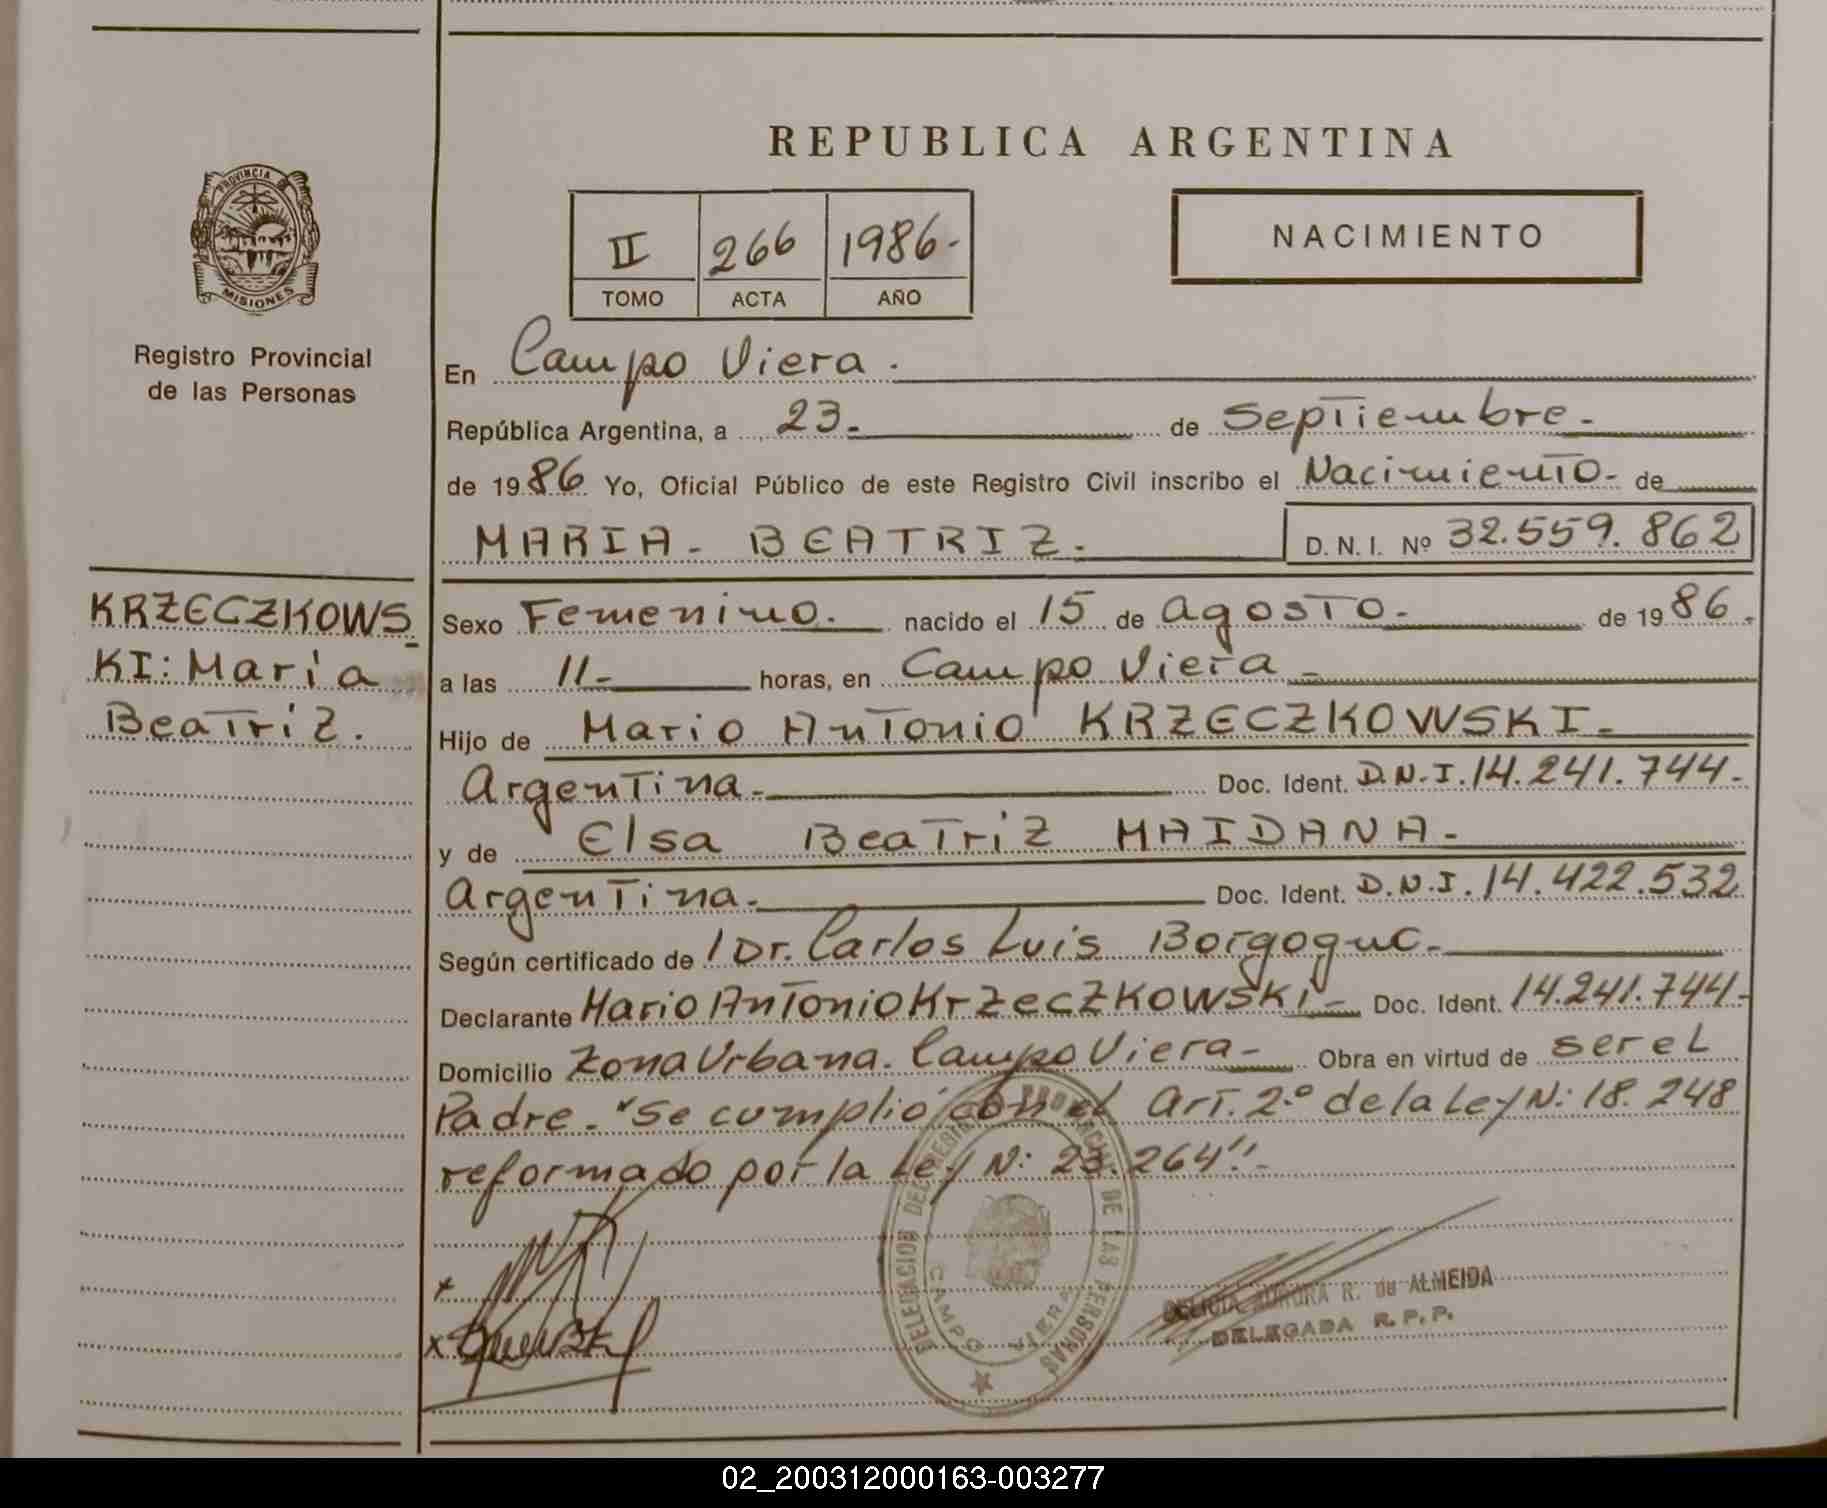 REPUBLICA ARGENTINA
PROVINCIA DE
MISIONES
Registro Provincial
de las Personas
II 266 1986.-
TOMO ACTA AÑO
NACIMIENTO
En Campo Viera.
República Argentina, a 23.- de Septiembre.-
de 1986 Yo, Oficial Público de este Registro Civil inscribo el Nacimiento.- de
MARIA - BEATRIZ.- D. N. I. Nº 32.559.862
KRZECZKOWS
KI: María
Beatriz.
Sexo Femenino. nacido el 15 de agosto.- de 1986.-
a las 11.- horas, en Campo Viera.-
Hijo de Mario Antonio KRZECZKOWSKI.-
Argentina.- Doc. Ident. D.N.I. 14.241.744.-
y de Elsa Beatriz MAIDANA.-
Argentina.- Doc. Ident. D.N.I. 14.422.532
Según certificado de / Dr. Carlos Luis
Declarante Mario Antonio Krzeczkowski.- Doc. Ident. 14.241.744.-
Domicilio Zona Urbana. Campo Viera.- Obra en virtud de ser el
Padre.- "Se cumplió con el Art. 2.º de la Ley N: 18.248
reformado por la Ley N: 23.264".-
DELEGACION DEL REGISTRO PROVINCIAL DE LAS PERSONAS
CAMPO VIERA
AURORA R. de ALMEIDA
DELEGADA R.P.P.
02_200312000163-003277